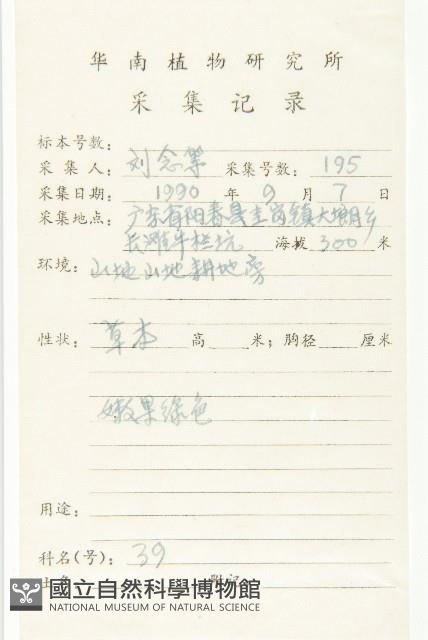 华南植物研究所
采集记录
标本号数：
采集人：刘念等 采集号数：195
采集日期：1990年9月7日
采集地点：广东省阳春县圭岗镇大垌乡
长滩牛栏坑 海拔300米
环境：山地 山地耕地旁
性状：草本 高 米；胸径 厘米
嫩果绿色
用途：
科名（号）：39
附记
國立自然科學博物館
NATIONAL MUSEUM OF NATURAL SCIENCE